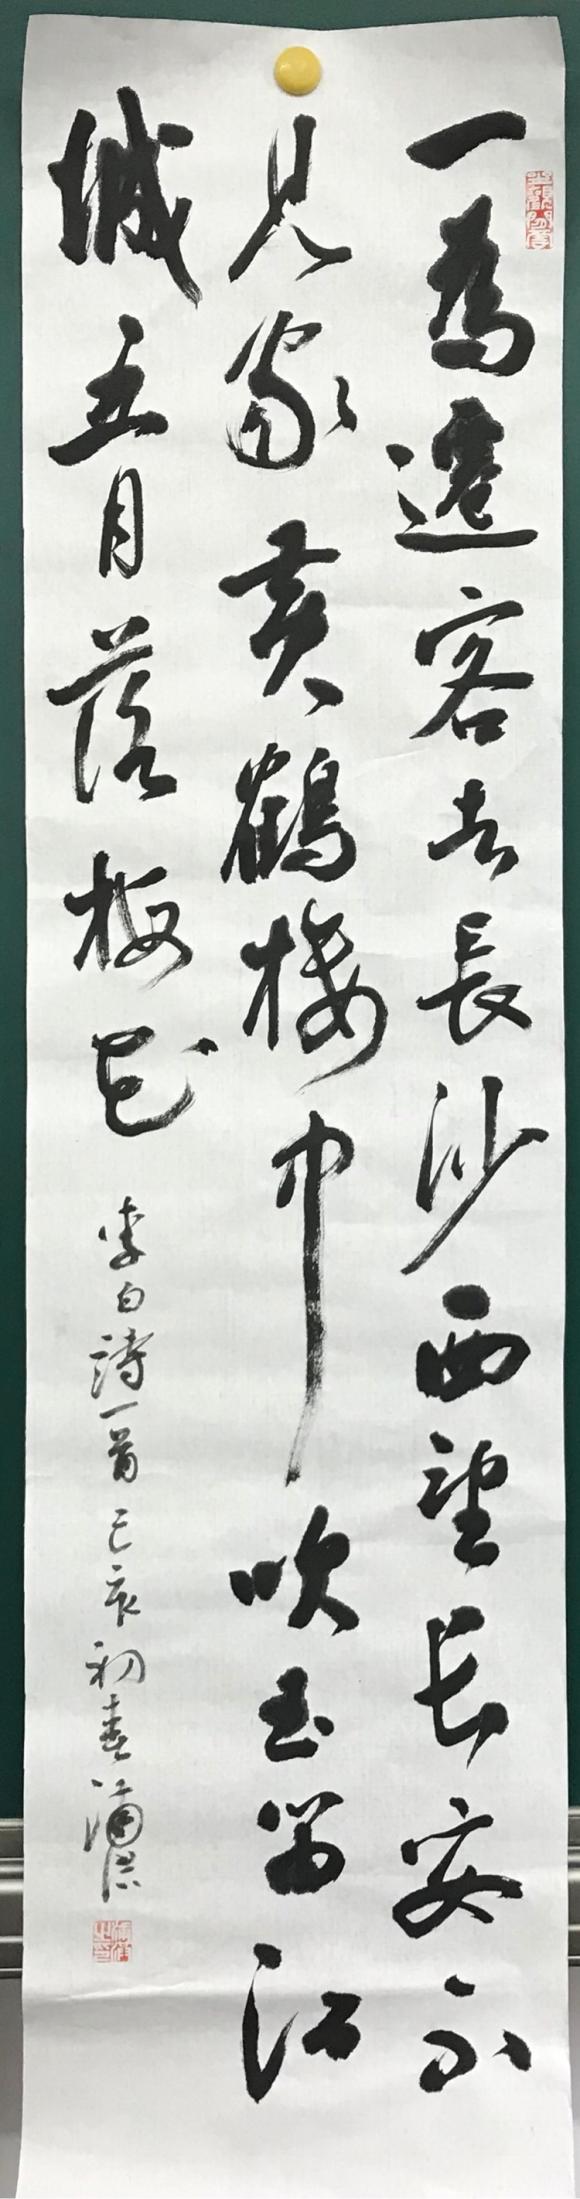 一為遷客去長沙西望长安不
見家黃鶴樓中吹玉笛江
城五月落梅花
李白詩一首己亥初春